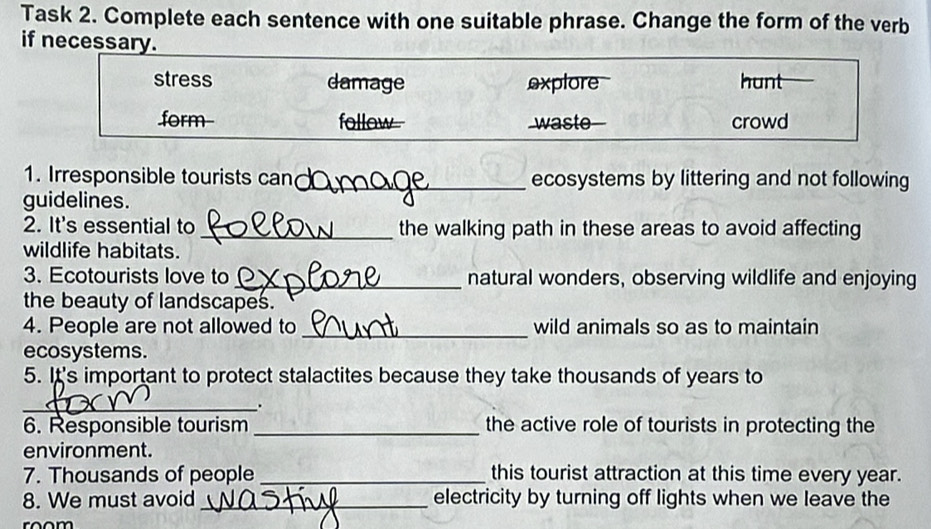 Task 2. Complete each sentence with one suitable phrase. Change the form of the verb
if necessary.
stress damage explore hunt
form follow waste crowd
1. Irresponsible tourists can damage ecosystems by littering and not following
guidelines.
2. It's essential to follow the walking path in these areas to avoid affecting
wildlife habitats.
3. Ecotourists love to explore natural wonders, observing wildlife and enjoying
the beauty of landscapes.
4. People are not allowed to hunt wild animals so as to maintain
ecosystems.
5. It's important to protect stalactites because they take thousands of years to
form.
6. Responsible tourism ____ the active role of tourists in protecting the
environment.
7. Thousands of people ____ this tourist attraction at this time every year.
8. We must avoid wasting electricity by turning off lights when we leave the
room